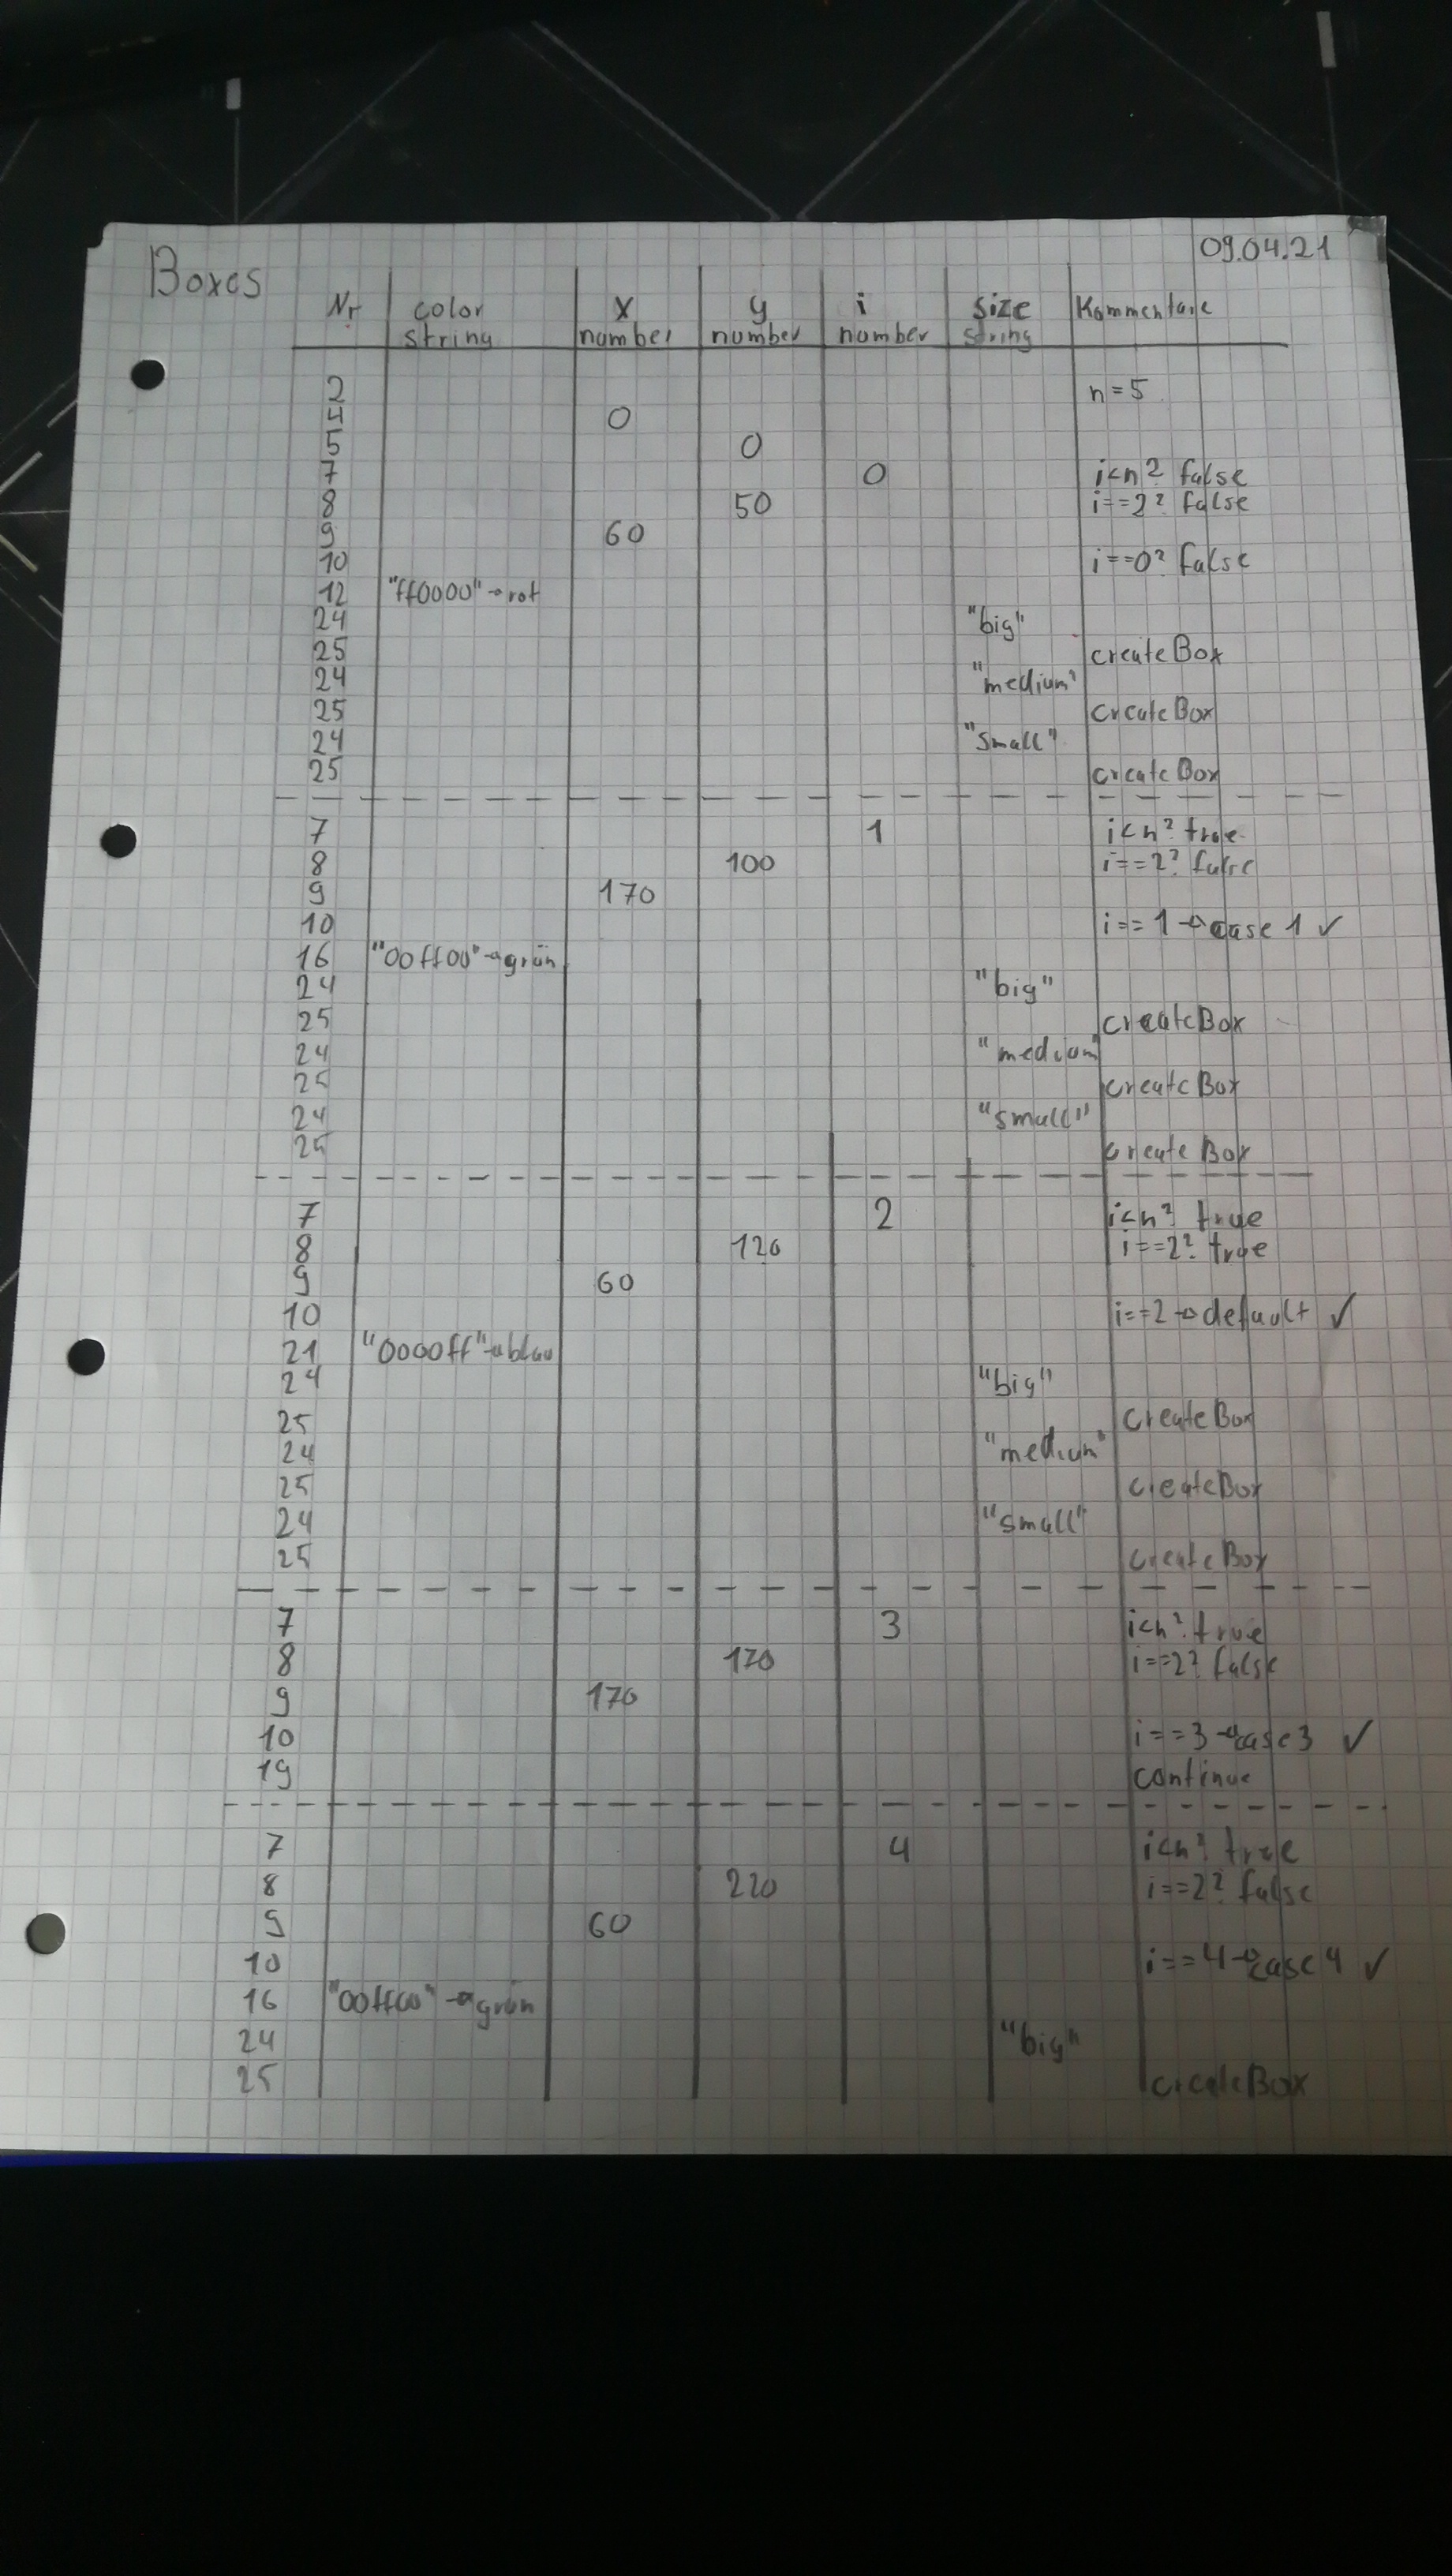 Boxes
09.04.21
Nr color x y i size Kommentare
string number number number string
2 n=5
4 0
5 0
7 0 i<n? false
8 50 i==2? false
9 60
10 i==0? false
12 "ff0000"→rot
24 "big"
25 createBox
24 "medium"
25 createBox
24 "small"
25 createBox
7 1 i<n? true
8 100 i==2? false
9 170
10 i==1→case 1 ✓
16 "00ff00"→grün
24 "big"
25 createBox
24 "medium"
25 createBox
24 "small"
25 createBox
7 2 i<n? true
8 120 i==2? true
9 60
10 i==2→default ✓
21 "0000ff"→blau
24 "big"
25 createBox
24 "medium"
25 createBox
24 "small"
25 createBox
7 3 i<n? true
8 170 i==2? false
9 170
10 i==3→case 3 ✓
19 continue
7 4 i<n? true
8 220 i==2? false
9 60
10 i==4→case 4 ✓
16 "00ff00"→grün
24 "big"
25 createBox